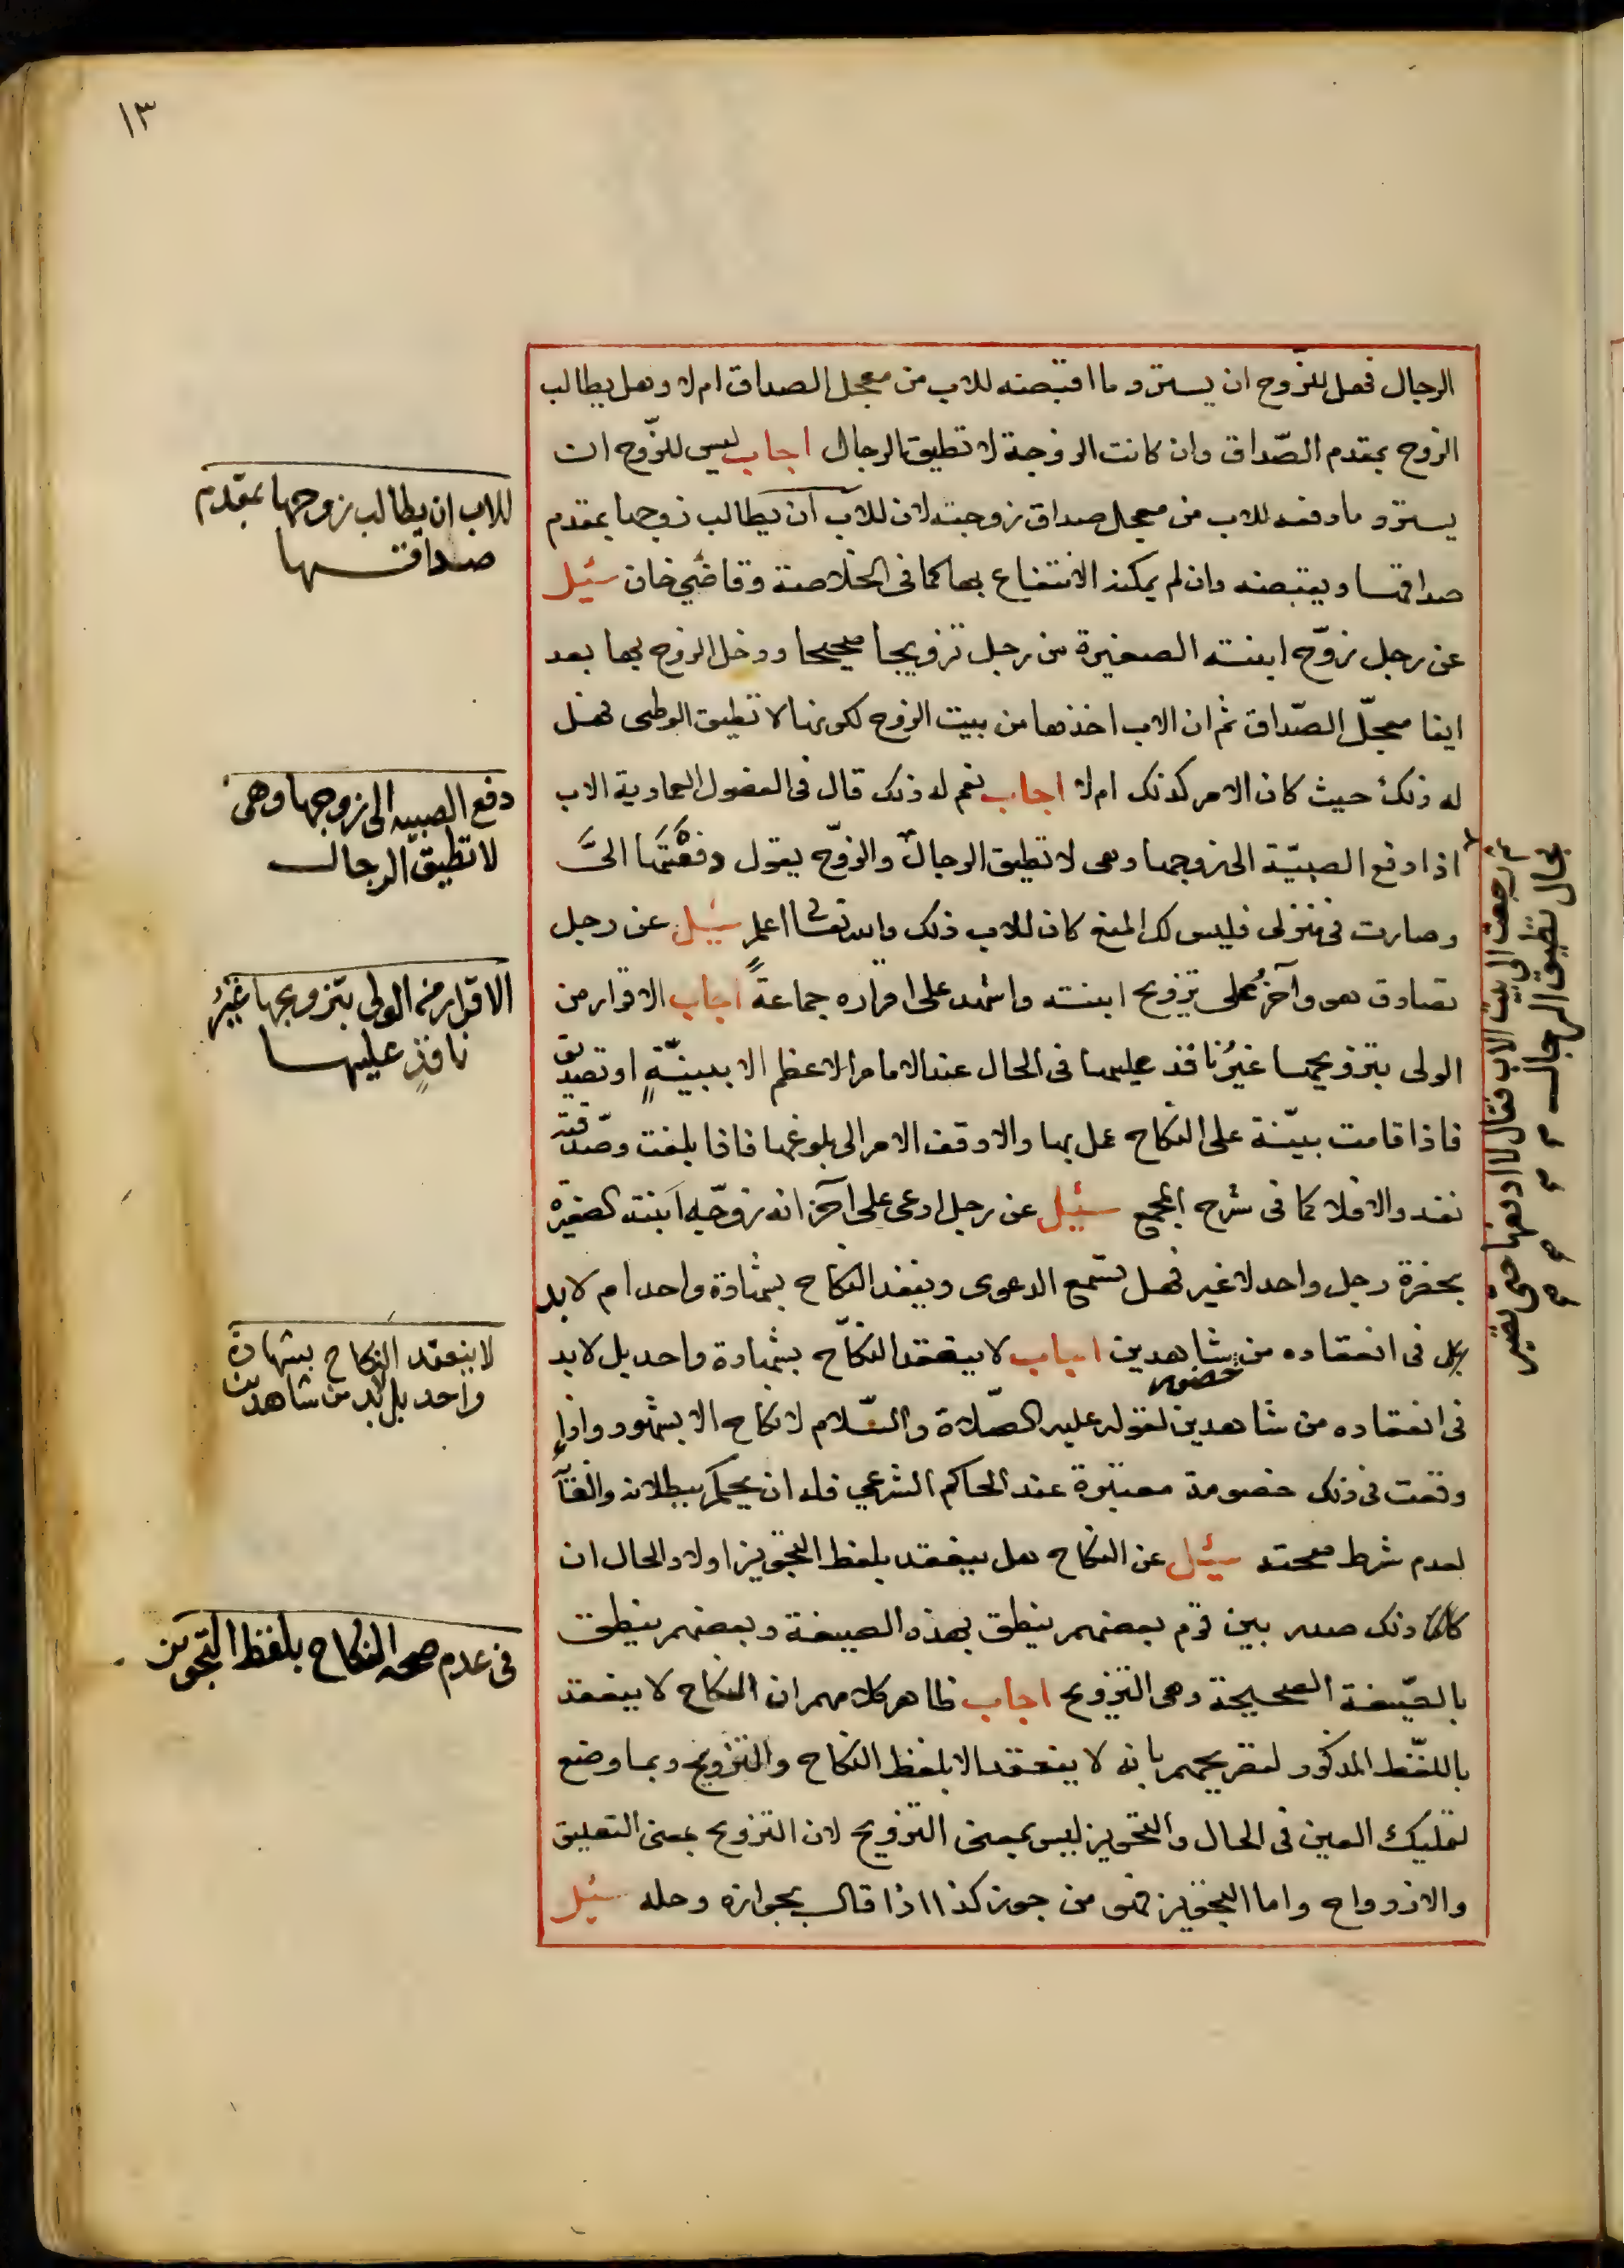 ١٣
الرجال فهل للزّوج ان يسترد ما اقبضه للاب من معجل الصداق ام لا وهل يطالب
الزوج بمقدم الصّداق وان كانت الزوجة لا تطيق الرجال اجاب ليس للزّوج ان
يسترد ما دفعه للاب من معجل صداق زوجته لان للاب ان يطالب زوجها بمقدم
صداقها ويقبضه وان لم يمكنه الانتفاع بها كما فى الخلاصة وقاضي خان سئيل
عن رجل زوّج ابنته الصغيرة من رجل تزويجا صحيحا ودخل الزوج بها بعد
ايفا معجّل الصّداق ثم ان الاب اخذها من بيت الزوج لكونها لا تطيق الوطى فهل
له ذلك حيث كان الامر كذلك ام لا اجاب نعم له ذلك قال فى الفصول العمادية الاب
اذا دفع الصبيّة الى زوجها وهى لا تطيق الرجال والزوّج يقول دفعْتَهَا الىَّ
وصارت فى منزلى فليس لك المنع كان للاب ذلك والله تعالى اعلم سئيل عن رجل
تصادق هو وآخرُ على تزويج ابنته واشهد على اقراره جماعةً اجاب الاقرار من
الولى بتزويجها غيرُ نافذ عليها فى الحال عند الامام الاعظم الا ببينّةٍ او تصديق
فاذا قامت بيّنة على النكاح عمل بها والا وقف الامر الى بلوغها فاذا بلغت وصدّقته
نفذ والا فلا كما فى شرح المجمع سئيل عن رجل ادعى على آخر انه زوّجه ابنته الصغيرة
بحضرة رجل واحد لا غير فهل تسمع الدعوى وينفذ النكاح بشهادة واحد ام لا بد
فى انعقاده من حضور شاهدين اجاب لا ينعقد النكاح بشهادة واحد بل لا بد
فى انعقاده من شاهدين لقوله عليه الصّلاة والسّلام لا نكاح الا بشهود واذا
وقعت فى ذلك خصومة معتبرة عند الحاكم الشرعي فله ان يحكم ببطلانه والغآ
لعدم شرط صحته سئيل عن النكاح هل ينعقد بلفظ التجويز اولا والحال ان
ذلك صدر بين قوم بعضهم ينطق بهذه الصيغة وبعضهم ينطق
بالصّيغة الصحيحة وهى التزويج اجاب ظاهر كلامهم ان النكاح لا ينعقد
باللفّظ المذكور لتصريحهم بانه لا ينعقد الا بلفظ النكاح والتزويج وبما وضع
لتمليك العين فى الحال والتجويز ليس بمعنى التزويج لان التزويج بمعنى التعليق
والازدواج واما التجويز فهو من جوز كذا اذا قال بجوازه وحله سئيل
للاب ان يطالب زوجها بمقدم
صداقها
دفع الصبيّه الى زوجها وهى
لا تطيق الرجال
الاقرار من الولى بتزويجها غيرُ
نافذٍ عليها
لا ينعقد النكاح بشهادة
واحد بل لابد من شاهدين
فى عدم صحه النكاح بلفظ التجويز
ثم رجعت الى بيت الاب فقال لا ادفعها حتى تصير
بحال تطيق الرجال